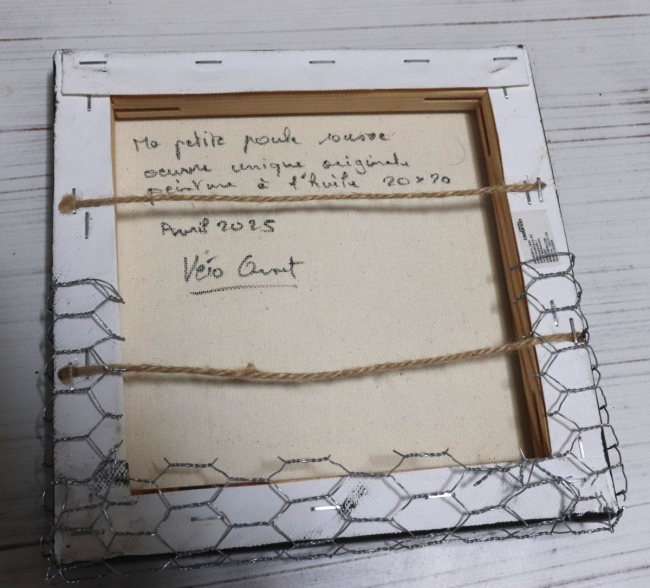 Ma petite poule rousse
oeuvre unique originale
peinture à l'huile 20x20
Avril 2025
Véro